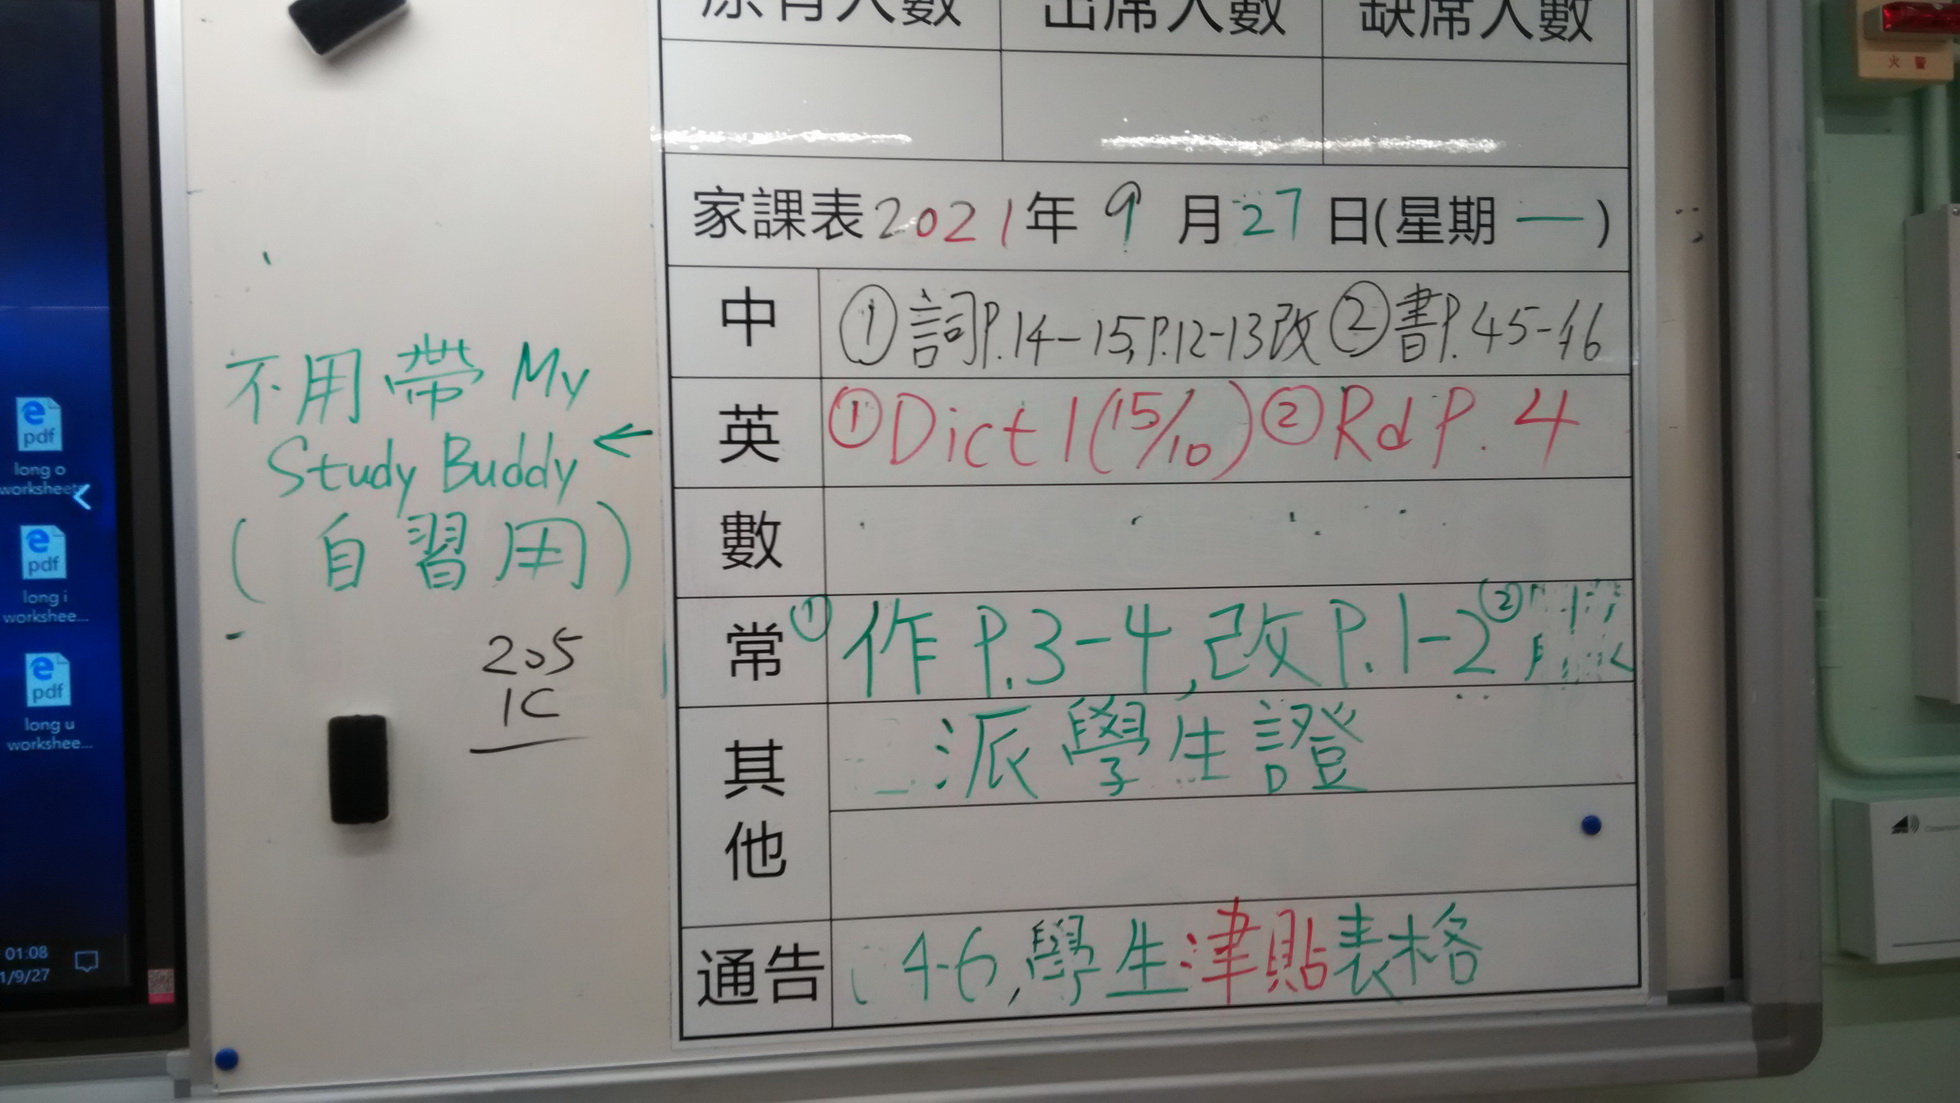 原有人數 出席人數 缺席人數
家課表2021年9月27日(星期一)
中 ①詞P.14-15,P.12-13改②書P.45-46
英 ①Dict 1(15/10)②Rd P.4
數
常 ①作P.3-4,改P.1-2②
其他 派學生證
通告 4-6,學生津貼表格
不用帶 My
Study Buddy ←
(自習用)
205
1C
pdf
long o
workshee
pdf
long i
workshee...
pdf
long u
workshee...
01:08
1/9/27
火警